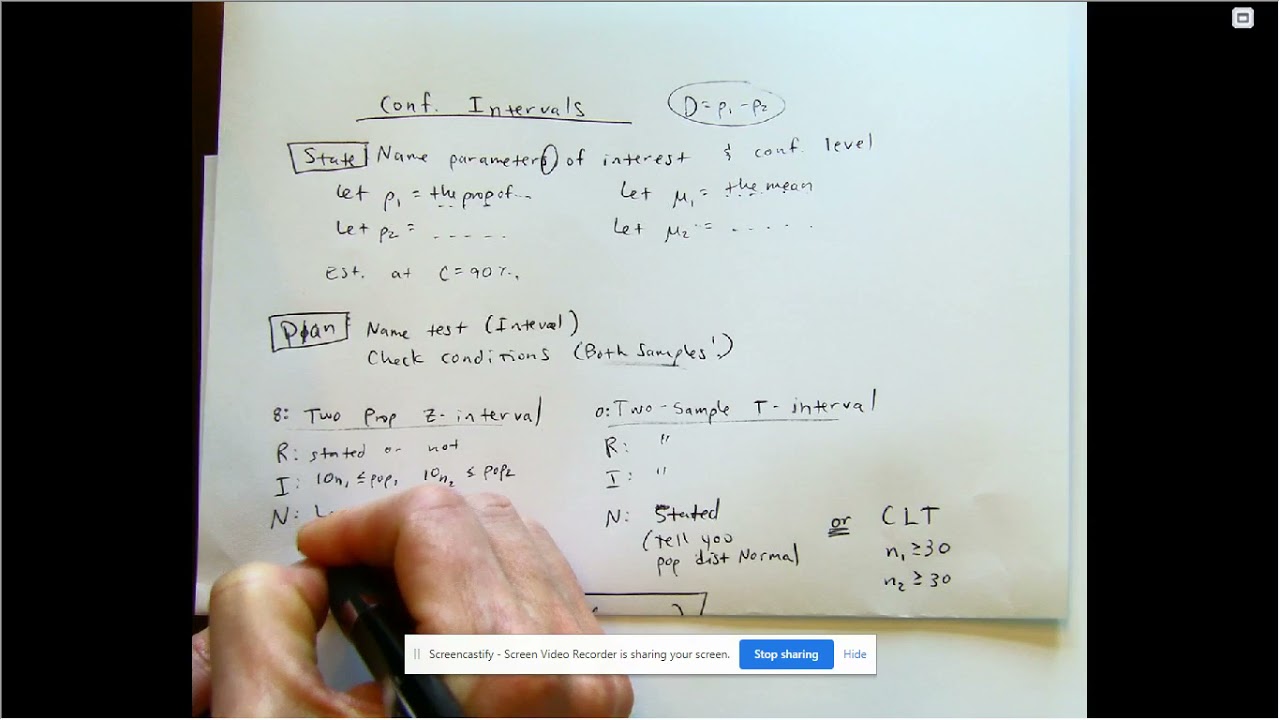 Conf. Intervals
D = p₁ - p₂
State Name parameter(s) of interest & conf. level
Let p₁ = the prop of...
Let μ₁ = the mean
Let p₂ = .....
Let μ₂ = .....
Est. at C = 90%.
Plan Name test (Interval)
Check conditions (Both Samples!)
8: Two Prop Z-interval
0: Two-Sample T-interval
R: stated or not
R: "
I: 10n₁ ≤ pop₁ 10n₂ ≤ pop₂
I: "
N: L
N: Stated
or CLT
(tell you
n₁ ≥ 30
pop dist Normal
n₂ ≥ 30
|| Screencastify - Screen Video Recorder is sharing your screen. Stop sharing Hide